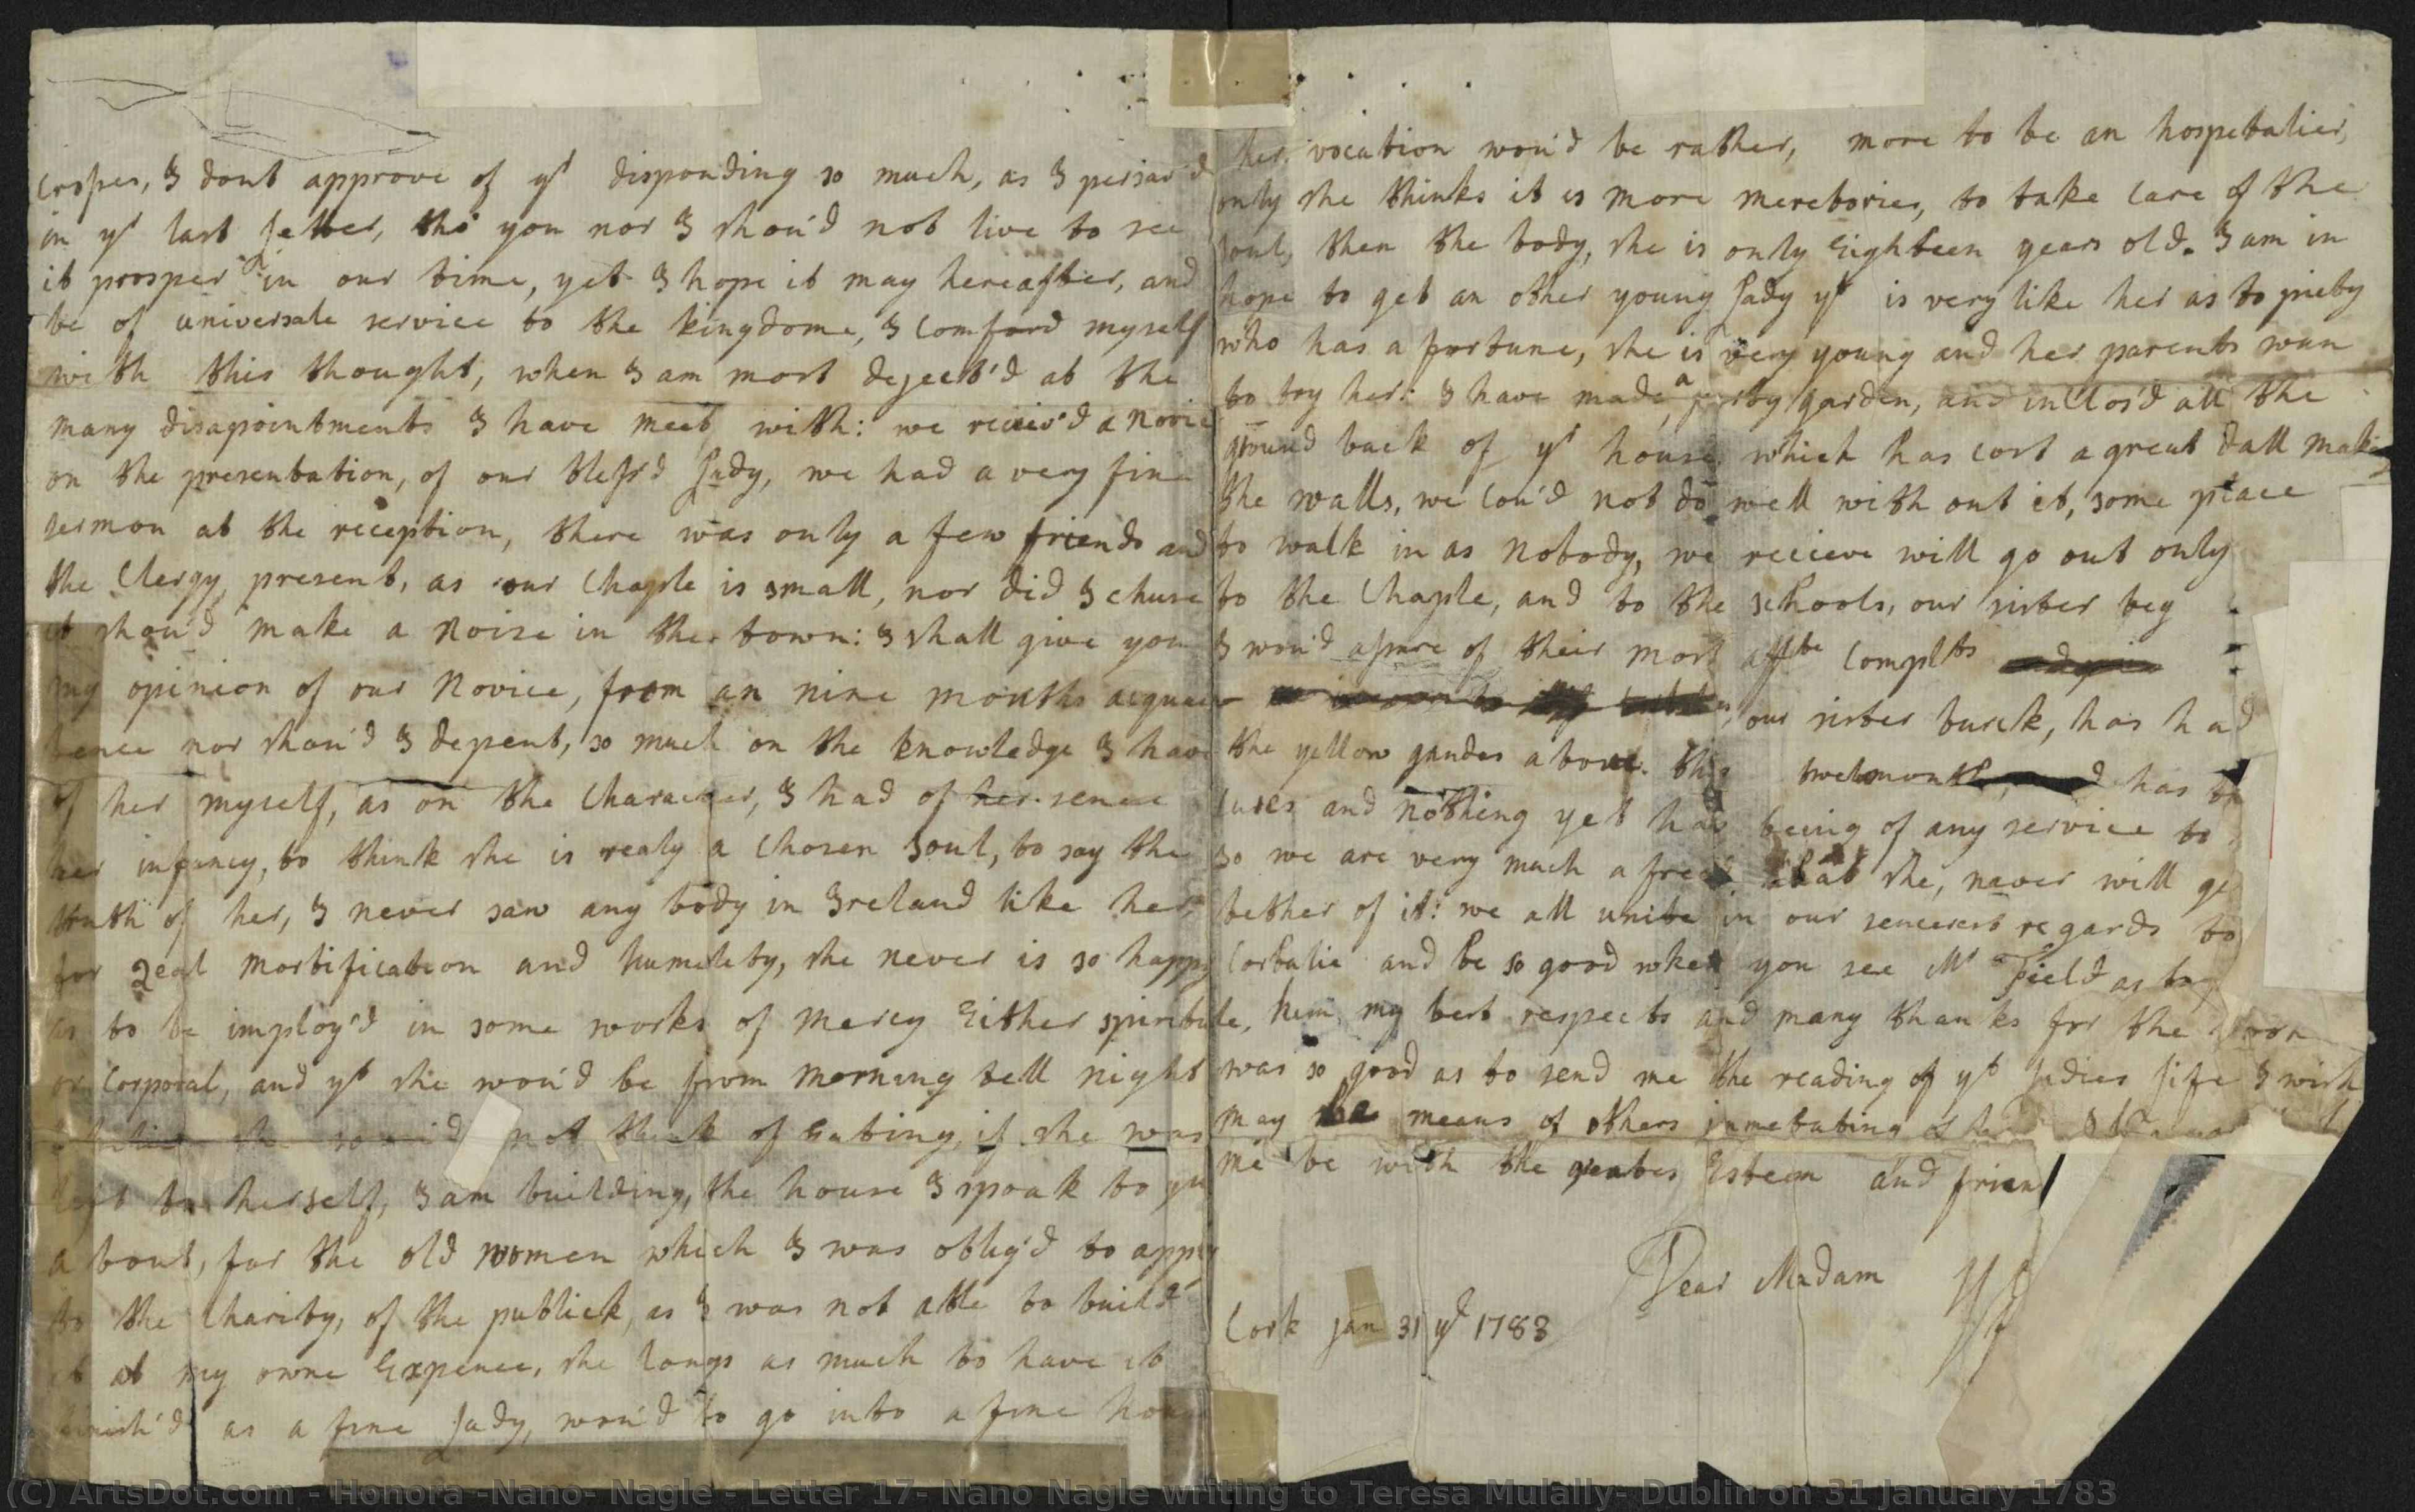 Croses, I dont approve of yr disponding so much, as I persav'd
in yr last letter, tho you nor I shou'd not live to see
it prosper in our time, yet I hope it may hereafter, and
be of universale service to the kingdome, I comford myself
with this thought, when I am most deject'd at the
many disapointments I have meet with: we reciev'd a novice
on the presentation, of our bless'd Lady, we had a very fine
sermon at the reception, there was only a few friends and
the Clergy present, as our Chaple is small, nor did I chuse
it shou'd make a noise in the town: I shall give you
my opinion of our Novice, from an nine months acquain
tence nor shou'd I depent, so much on the knowledge I have
of her myself, as on the Character, I had of her sence
her infancy, to think she is realy a Chosen soul, to say the
truth of her, I never saw any body in Ireland like her,
for zeal mortification and humelety, she never is so happy
as to be imploy'd in some works of mercy Either spiritule,
or Corporal, and yt she wou'd be from morning tell night
not think of Eating, if she was
left to herself, I am building, the house I spoak to you
about, for the old women which I was oblig'd to apply
to the Charity, of the publick, as I was not able to build
it at my owne Expence, she longs as much to have it
finish'd as a fine Lady, wou'd to go into a fine house
her vocation wou'd be rather, more to be an hospetalier,
only she thinks it is more meretories, to take care of the
soul, then the body, she is only Eighteen years old. I am in
hope to get an other young Lady yt is very like her as to piety
who has a fortune, she is very young and her parents wan
to try her: I have made a prity garden, and inclos'd all the
ground back of yr house which has cost a great dall making
the walls, we cou'd not do well with out it, some place
to walk in as nobody, we recieve will go out only
to the Chaple, and to the schools, our sister beg
I wou'd assure of their most affte complts
our sister burck, has had
the yellow jandes about this twelmonth, and has
and nothing yet has being of any service to
so we are very much afread that she, never will ge
bether of it: we all unite in our sencerest regards to
Corbalie and be so good when you see Mr Field as to
him my best respects and many thanks for the
was so good as to send me the reading of yt Ladies life I wish
may be means of others inmetating of her
me be with the greates Esteem and frien
Dear Madam
Cork jan 31 yr 1783
(C) ArtsDot.com - Honora -Nano- Nagle - Letter 17- Nano Nagle writing to Teresa Mulally- Dublin on 31 January 1783